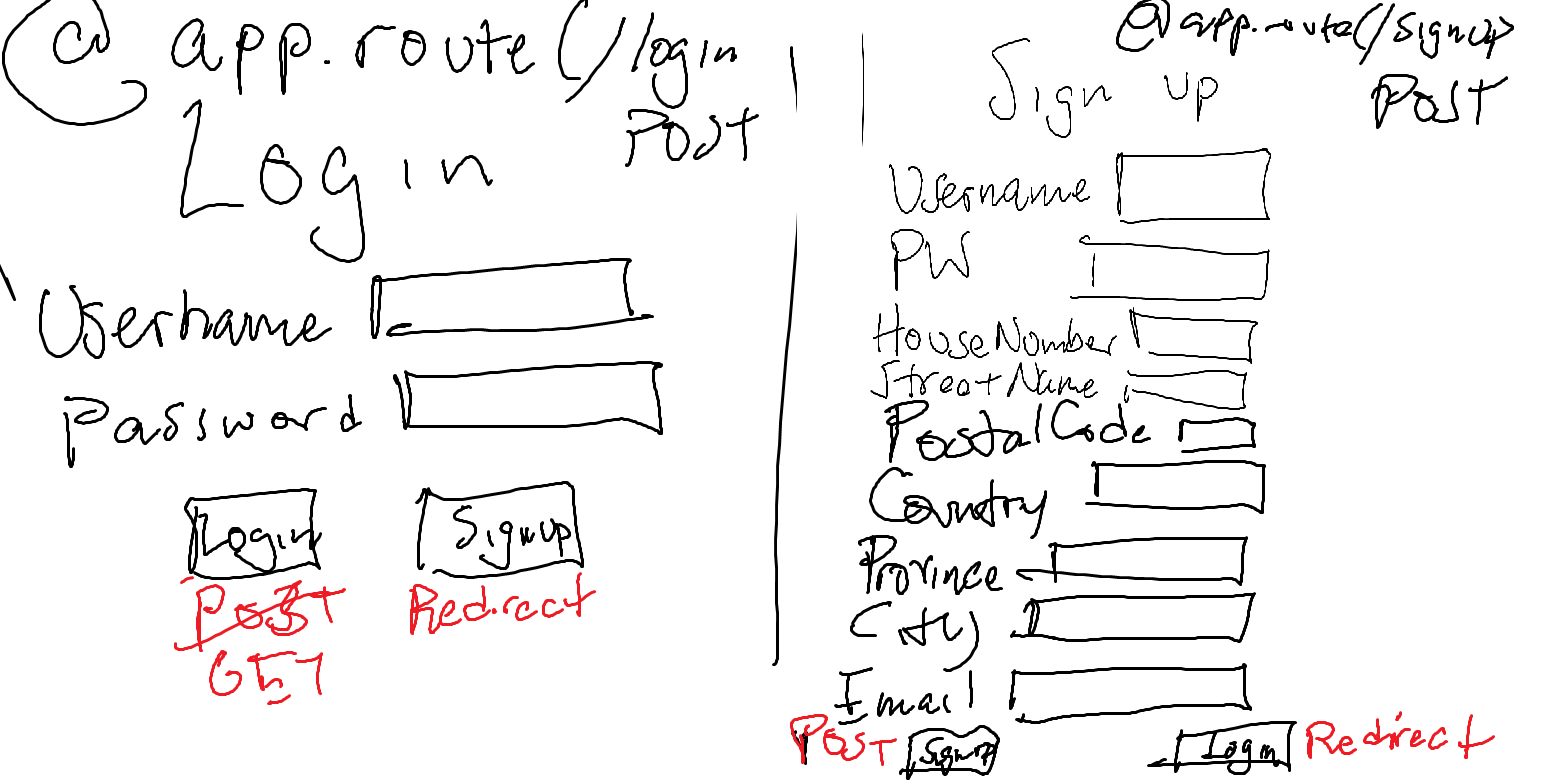 @app.route(/login
POST
Login
Username
Password
Login
Signup
POST
Redirect
GET
@app.route(/signup
POST
Sign up
Username
PW
HouseNumber
StreetName
PostalCode
Country
Province
City
Email
POST
Signup
Login
Redirect